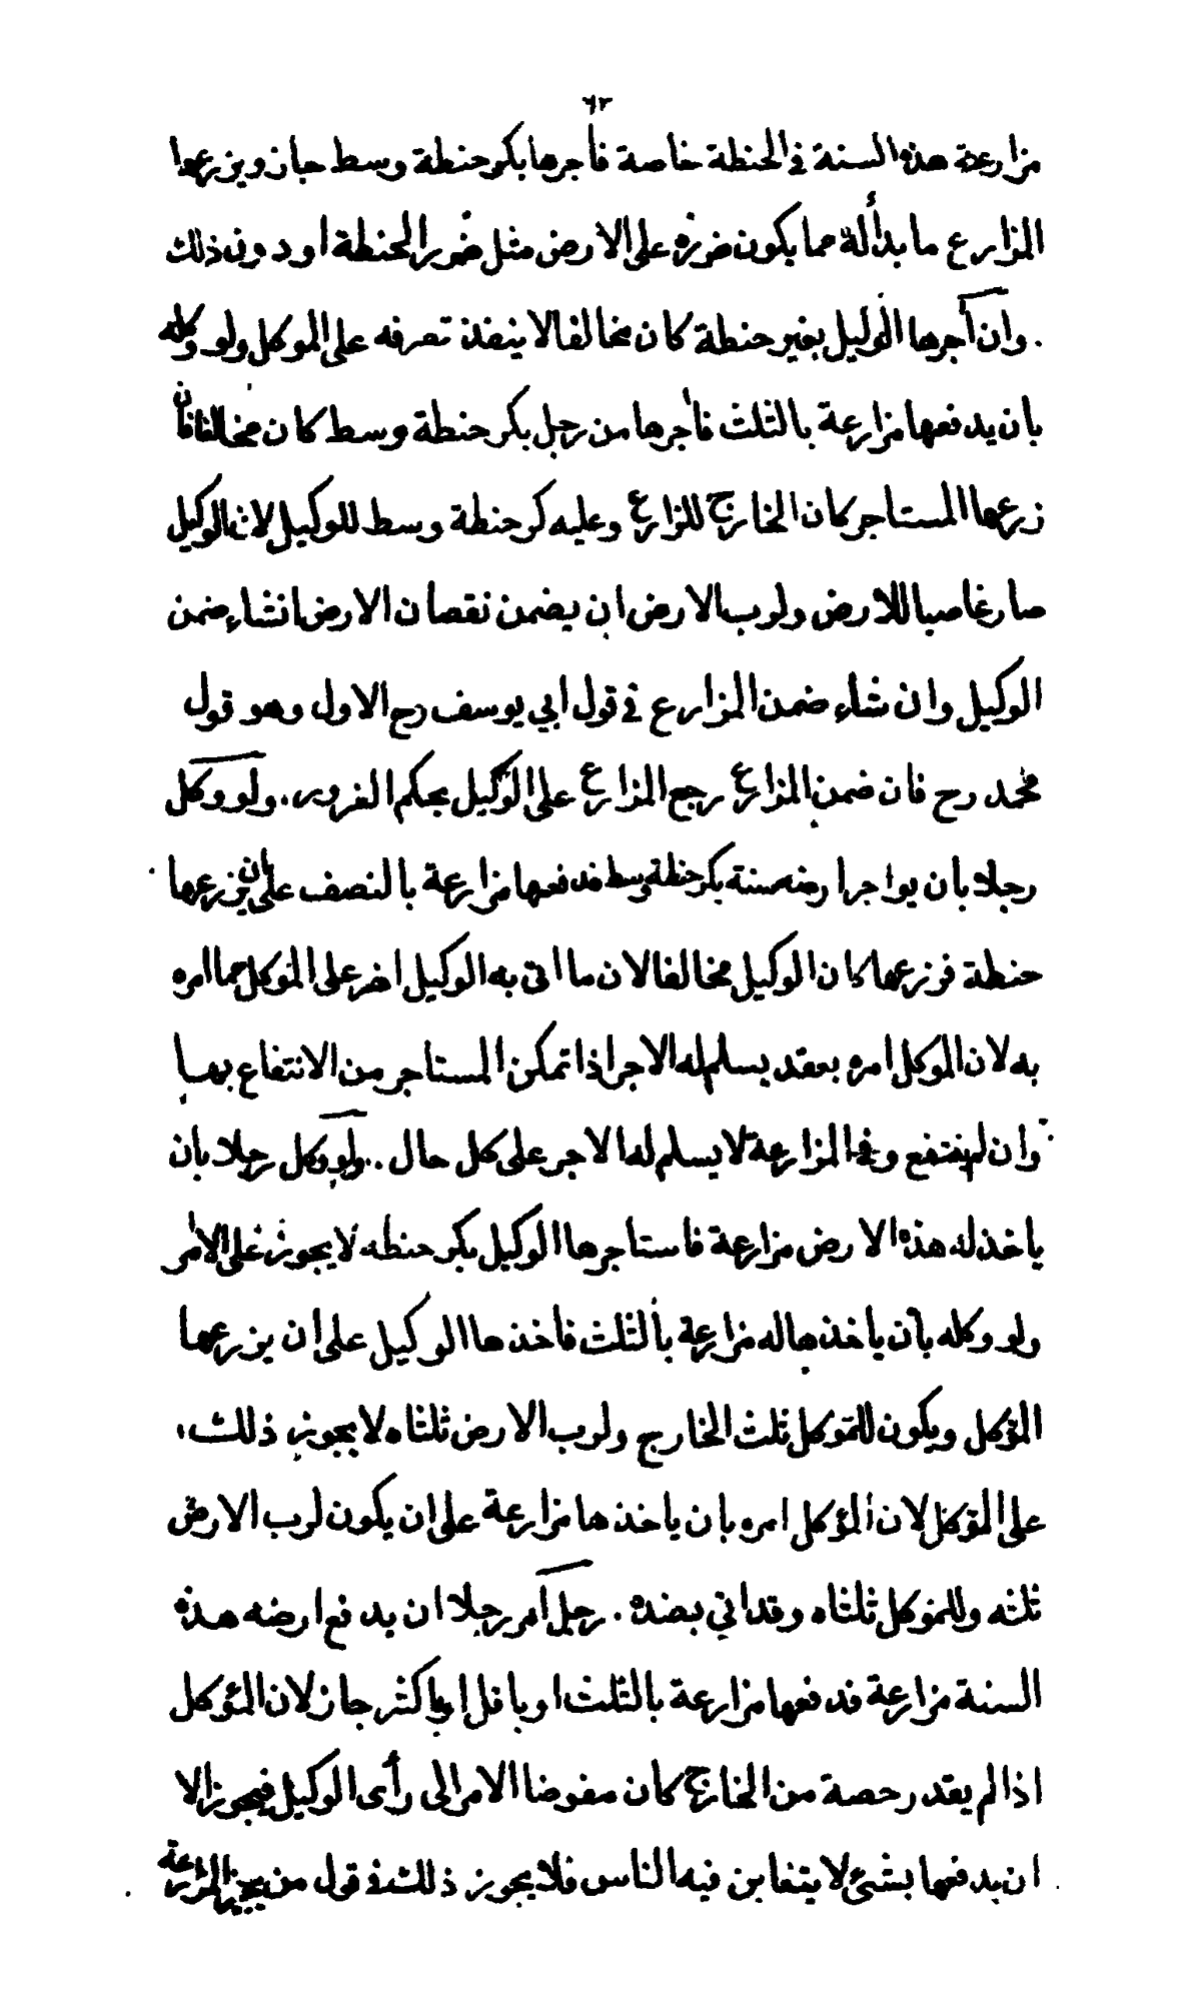 ٦٢
مزارعة هذه السنة في الحنطة خاصة فأجرها بكر حنطة وسط جاز ويزرعها
المزارع ما بدأ له مما يكون ضرره على الارض مثل ضرر الحنطة او دون ذلك
وان آجرها الوكيل بغير حنطة كان مخالفا لا ينفذ تصرفه على الموكل ولو وكله
بان يدفعها مزارعة بالثلث فاجرها من رجل بكر حنطة وسط كان مخالفا فان
زرعها المستاجر كان الخارج للزارع وعليه كر حنطة وسط للوكيل لان الوكيل
صار غاصبا للارض ولرب الارض ان يضمن نقصان الارض ان شاء ضمن
الوكيل وان شاء ضمن المزارع في قول ابي يوسف رح الاول وهو قول
محمد رح فان ضمن المزارع رجع المزارع على الوكيل بحكم الغرور. ولو وكل
رجلا بان يواجر ارضه سنة بكر حنطة وسط فدفعها مزارعة بالنصف على ان يزرعها
حنطة فزرعها كان الوكيل مخالفا لان ما اتى به الوكيل اضر على الموكل مما امره
به لان الموكل امره بعقد يسلم له الاجر اذا تمكن المستاجر من الانتفاع بها
وان لم ينتفع وفي المزارعة لا يسلم له الاجر على كل حال .. ولو وكل رجلا بان
ياخذ له هذه الارض مزارعة فاستاجرها الوكيل بكر حنطه لا يجوز على الامر
ولو وكله بان ياخذها له مزارعة بالثلث فاخذها الوكيل على ان يزرعها
المؤكل ويكون للموكل ثلث الخارج ولرب الارض ثلثاه لا يجوز ذلك
على المؤكل لان المؤكل امره بان ياخذها مزارعة على ان يكون لرب الارض
ثلثه وللموكل ثلثاه وقد اتي بضده . رجل امر رجلا ان يدفع ارضه هذه
السنة مزارعة فدفعها مزارعة بالثلث او باقل او باكثر جاز لان المؤكل
اذا لم يقدر حصة من الخارج كان مفوضا الامر الى رأى الوكيل فيجوز الا
ان يدفعها بشئ لا يتغابن فيه الناس فلا يجوز ذلك في قول من يجيز المزارعة